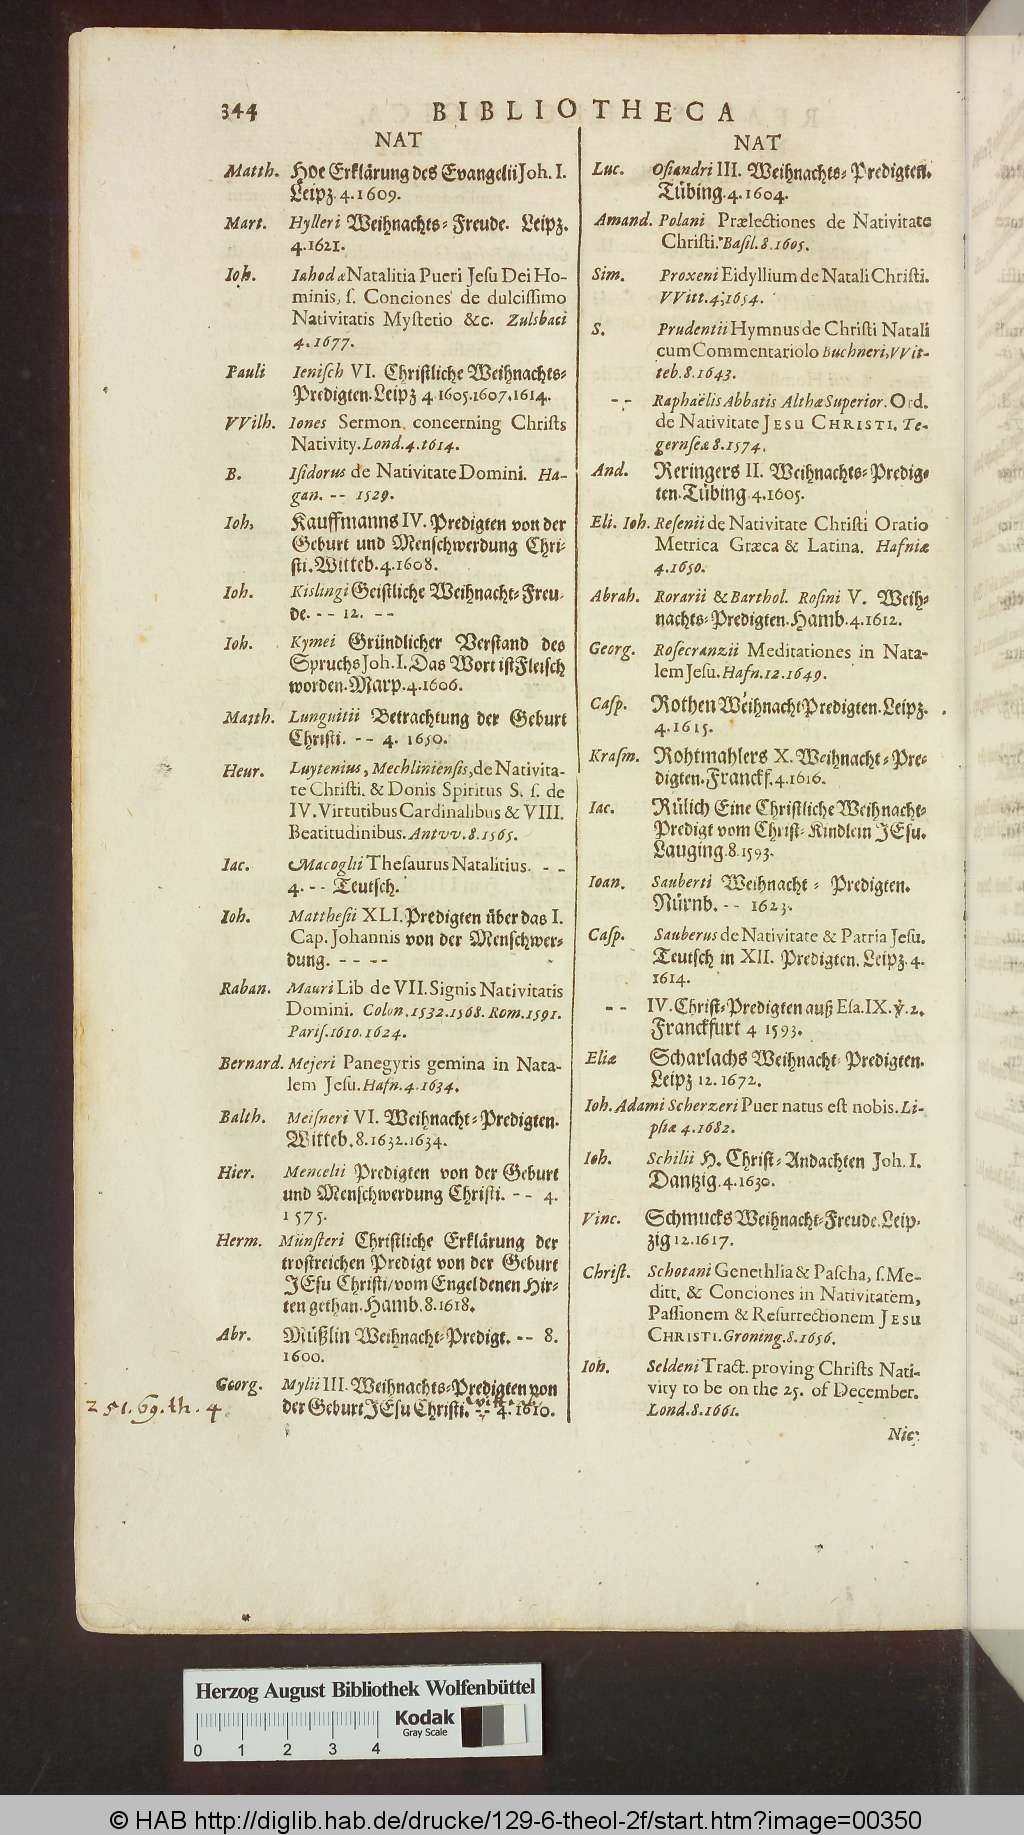 344 BIBLIOTHECA
NAT
Matth. Hoe Erklärung des Evangelii Joh. I.
Leipz. 4. 1609.
Mart. Hylleri Weihnachts-Freude. Leipz.
4. 1621.
Ioh. Iahodæ Natalitia Pueri Jesu Dei Ho-
minis, s. Conciones de dulcissimo
Nativitatis Mysterio &c. Zulsbaci
4. 1677.
Pauli Ienisch VI. Christliche Weihnachts-
Predigten. Leipz 4 1605. 1607. 1614.
VVilh. Iones Sermon concerning Christs
Nativity. Lond. 4. 1614.
B. Isidorus de Nativitate Domini. Ha-
gan. -- 1529.
Ioh. Kauffmanns IV. Predigten von der
Geburt und Menschwerdung Chri-
sti. Witteb. 4. 1608.
Ioh. Kislingi Geistliche Weihnacht-Freu-
de. -- 12. --
Ioh. Kymei Gründlicher Verstand des
Spruchs Joh. I. Das Wort ist Fleisch
worden. Marp. 4. 1606.
Matth. Lunguitii Betrachtung der Geburt
Christi. -- 4. 1650.
Heur. Luytenius, Mechliniensis, de Nativita-
te Christi. & Donis Spiritus S. s. de
IV. Virtutibus Cardinalibus & VIII.
Beatitudinibus. Antvv. 8. 1565.
Iac. Macoglii Thesaurus Natalitius. --
4. -- Teutsch.
Ioh. Matthesii XLI. Predigten über das I.
Cap. Johannis von der Menschwer-
dung. -- --
Raban. Mauri Lib de VII. Signis Nativitatis
Domini. Colon. 1532. 1568. Rom. 1591.
Paris. 1610. 1624.
Bernard. Mejeri Panegyris gemina in Nata-
lem Jesu. Hafn. 4. 1634.
Balth. Meisneri VI. Weihnacht-Predigten.
Witteb. 8. 1632. 1634.
Hier. Mencelii Predigten von der Geburt
und Menschwerdung Christi. -- 4.
1575.
Herm. Münsteri Christliche Erklärung der
trostreichen Predigt von der Geburt
JEsu Christi/ vom Engel denen Hir-
ten gethan. Hamb. 8. 1618.
Abr. Müßlin Weihnacht-Predigt. -- 8.
1600.
Georg. Mylii III. Weihnachts-Predigten von
der Geburt JEsu Christi. -- 4. 1610.
251. 69. th. 4
NAT
Luc. Osiandri III. Weihnachts-Predigten.
Tübing. 4. 1604.
Amand. Polani Prælectiones de Nativitate
Christi. Basil. 8. 1605.
Sim. Proxeni Eidyllium de Natali Christi.
VVitt. 4. 1654.
S. Prudentii Hymnus de Christi Natali
cum Commentariolo Buchneri, VVit-
teb. 8. 1643.
-- Raphaëlis Abbatis Althæ Superior. Ord.
de Nativitate JESU CHRISTI. Te-
gernseæ 8. 1574.
And. Reringers II. Weihnachts-Predig-
ten. Tübing. 4. 1605.
Eli. Ioh. Resenii de Nativitate Christi Oratio
Metrica Græca & Latina. Hafniæ
4. 1650.
Abrah. Rorarii & Barthol. Rosini V. Weih-
nachts-Predigten. Hamb. 4. 1612.
Georg. Rosecranzii Meditationes in Nata-
lem Jesu. Hafn. 12. 1649.
Casp. Rothen Weihnacht Predigten. Leipz.
4. 1615.
Krasm. Rohtmahlers X. Weihnacht-Pre-
digten. Franckf. 4. 1616.
Iac. Rülich Eine Christliche Weihnacht-
Predigt vom Christ-Kindlein JEsu.
Lauging. 8. 1593.
Ioan. Sauberti Weihnacht-Predigten.
Nürnb. -- 1623.
Casp. Sauberus de Nativitate & Patria Jesu.
Teutsch in XII. Predigten. Leipz. 4.
1614.
-- IV. Christ-Predigten auß Esa. IX. ℣. 2.
Franckfurt 4 1593.
Eliæ Scharlachs Weihnacht-Predigten.
Leipz 12. 1672.
Ioh. Adami Scherzeri Puer natus est nobis. Li-
psiæ 4. 1682.
Ioh. Schilii H. Christ-Andachten Joh. I.
Dantzig. 4. 1630.
Vinc. Schmucks Weihnacht-Freude. Leip-
zig 12. 1617.
Christ. Schotani Genethlia & Pascha, s. Me-
ditt. & Conciones in Nativitatem,
Passionem & Resurrectionem JESU
CHRISTI. Groning. 8. 1656.
Ioh. Seldeni Tract. proving Christs Nati-
vity to be on the 25. of December.
Lond. 8. 1661.
Nic.
Herzog August Bibliothek Wolfenbüttel
0 1 2 3 4
Kodak
Gray Scale
© HAB http://diglib.hab.de/drucke/129-6-theol-2f/start.htm?image=00350